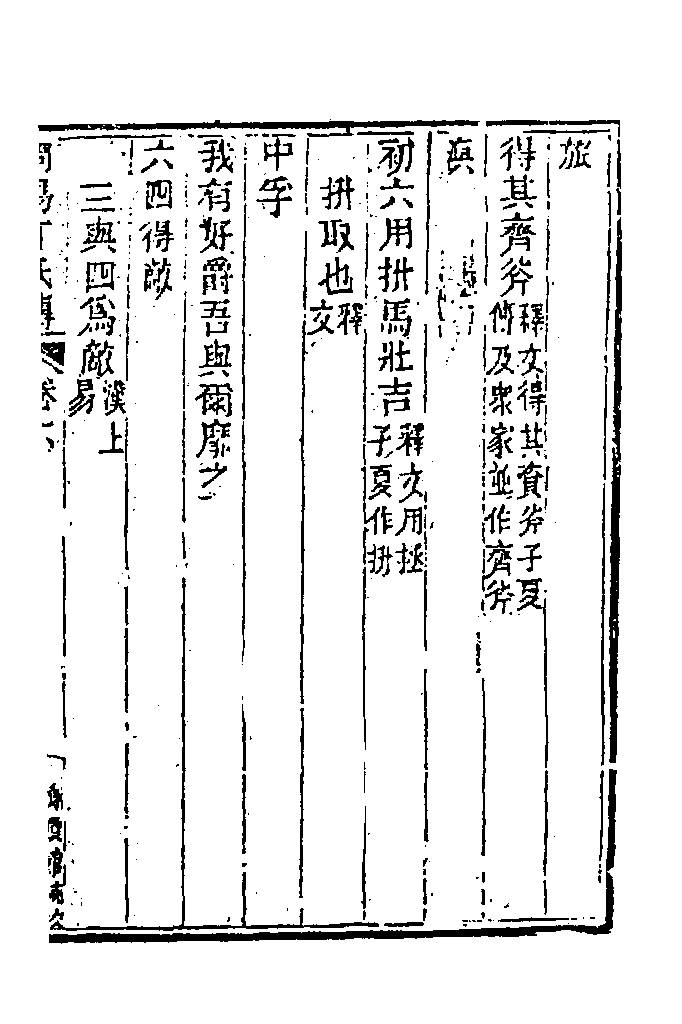 旅
得其齊斧釋文得其資斧子夏
傳及衆家並作齊斧
渙
初六用抍馬壯吉釋文用拯
子夏作抍
抍取也釋
文
中孚
我有好爵吾與爾靡之
六四得敵
三與四爲敵漢上
易